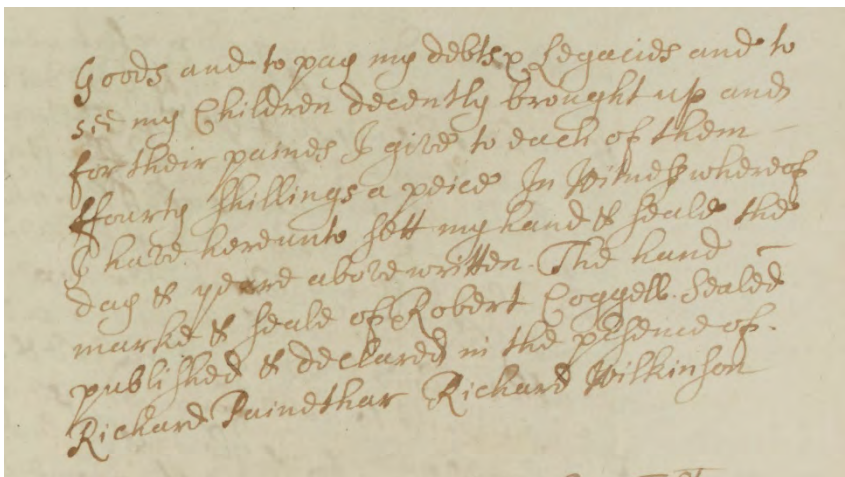 Goods and to pay my debts & Legacies and to
see my Children decently brought up and
for their paines I give to each of them
ffourty shillings a peice In Witness whereof
I have hereunto sett my hand & seale the
day & yeare above written. The hand
marke & seale of Robert Coggell. Sealed
published & declared in the psence of.
Richard Richard Wilkinson